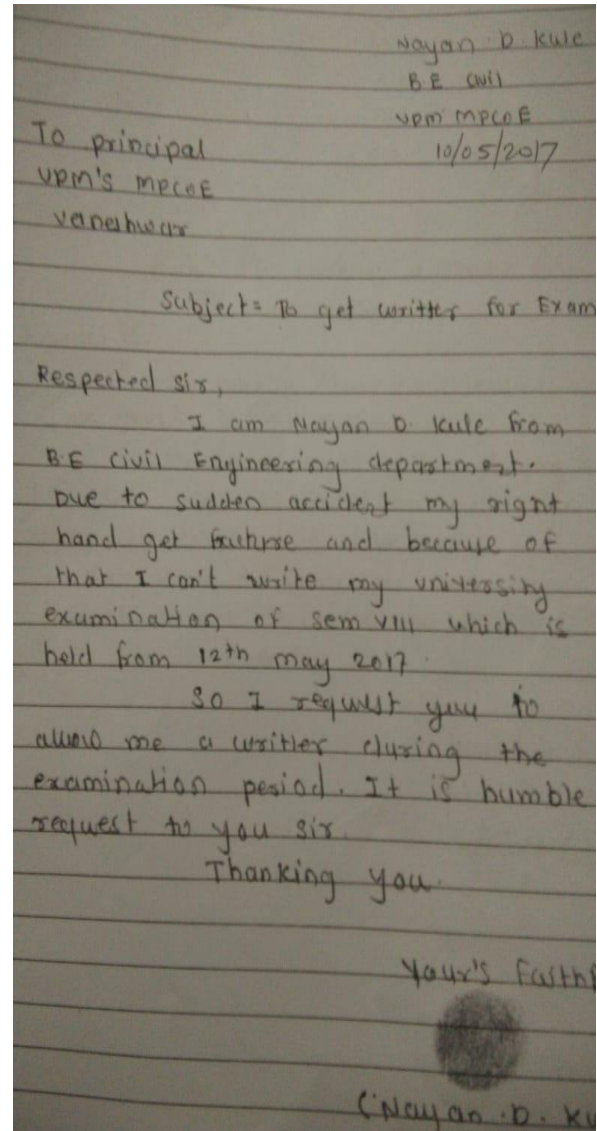 Nayan D. Kule
B.E civil
VPM MPCOE
To principal
10/05/2017
VPM's MPCOE
Velneshwar
Subject= To get writter for Exam
Respected sir,
I am Nayan D. Kule from
B.E civil Engineering department.
Due to sudden accident my right
hand get and because of
that I can't write my university
examination of sem VIII which is
held from 12th may 2017.
So I request you to
allow me a writter during the
examination period. It is humble
request to you sir.
Thanking you.
Your's Faithf
(Nayan .D. Ku